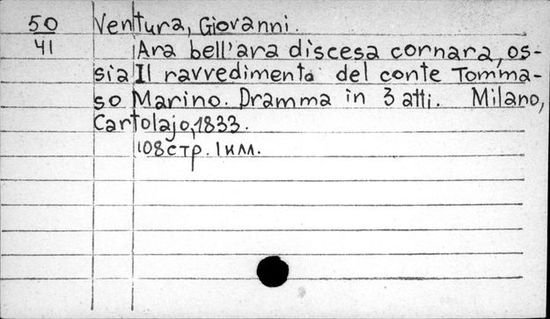 50 Ventura, Giovanni.
41 Ara bell'ara discesa cornara, os-
sia Il ravvedimento del conte Tomma-
so Marino. Dramma in 3 atti. Milano,
Cartolajo, 1833.
108 стр. 1 илл.